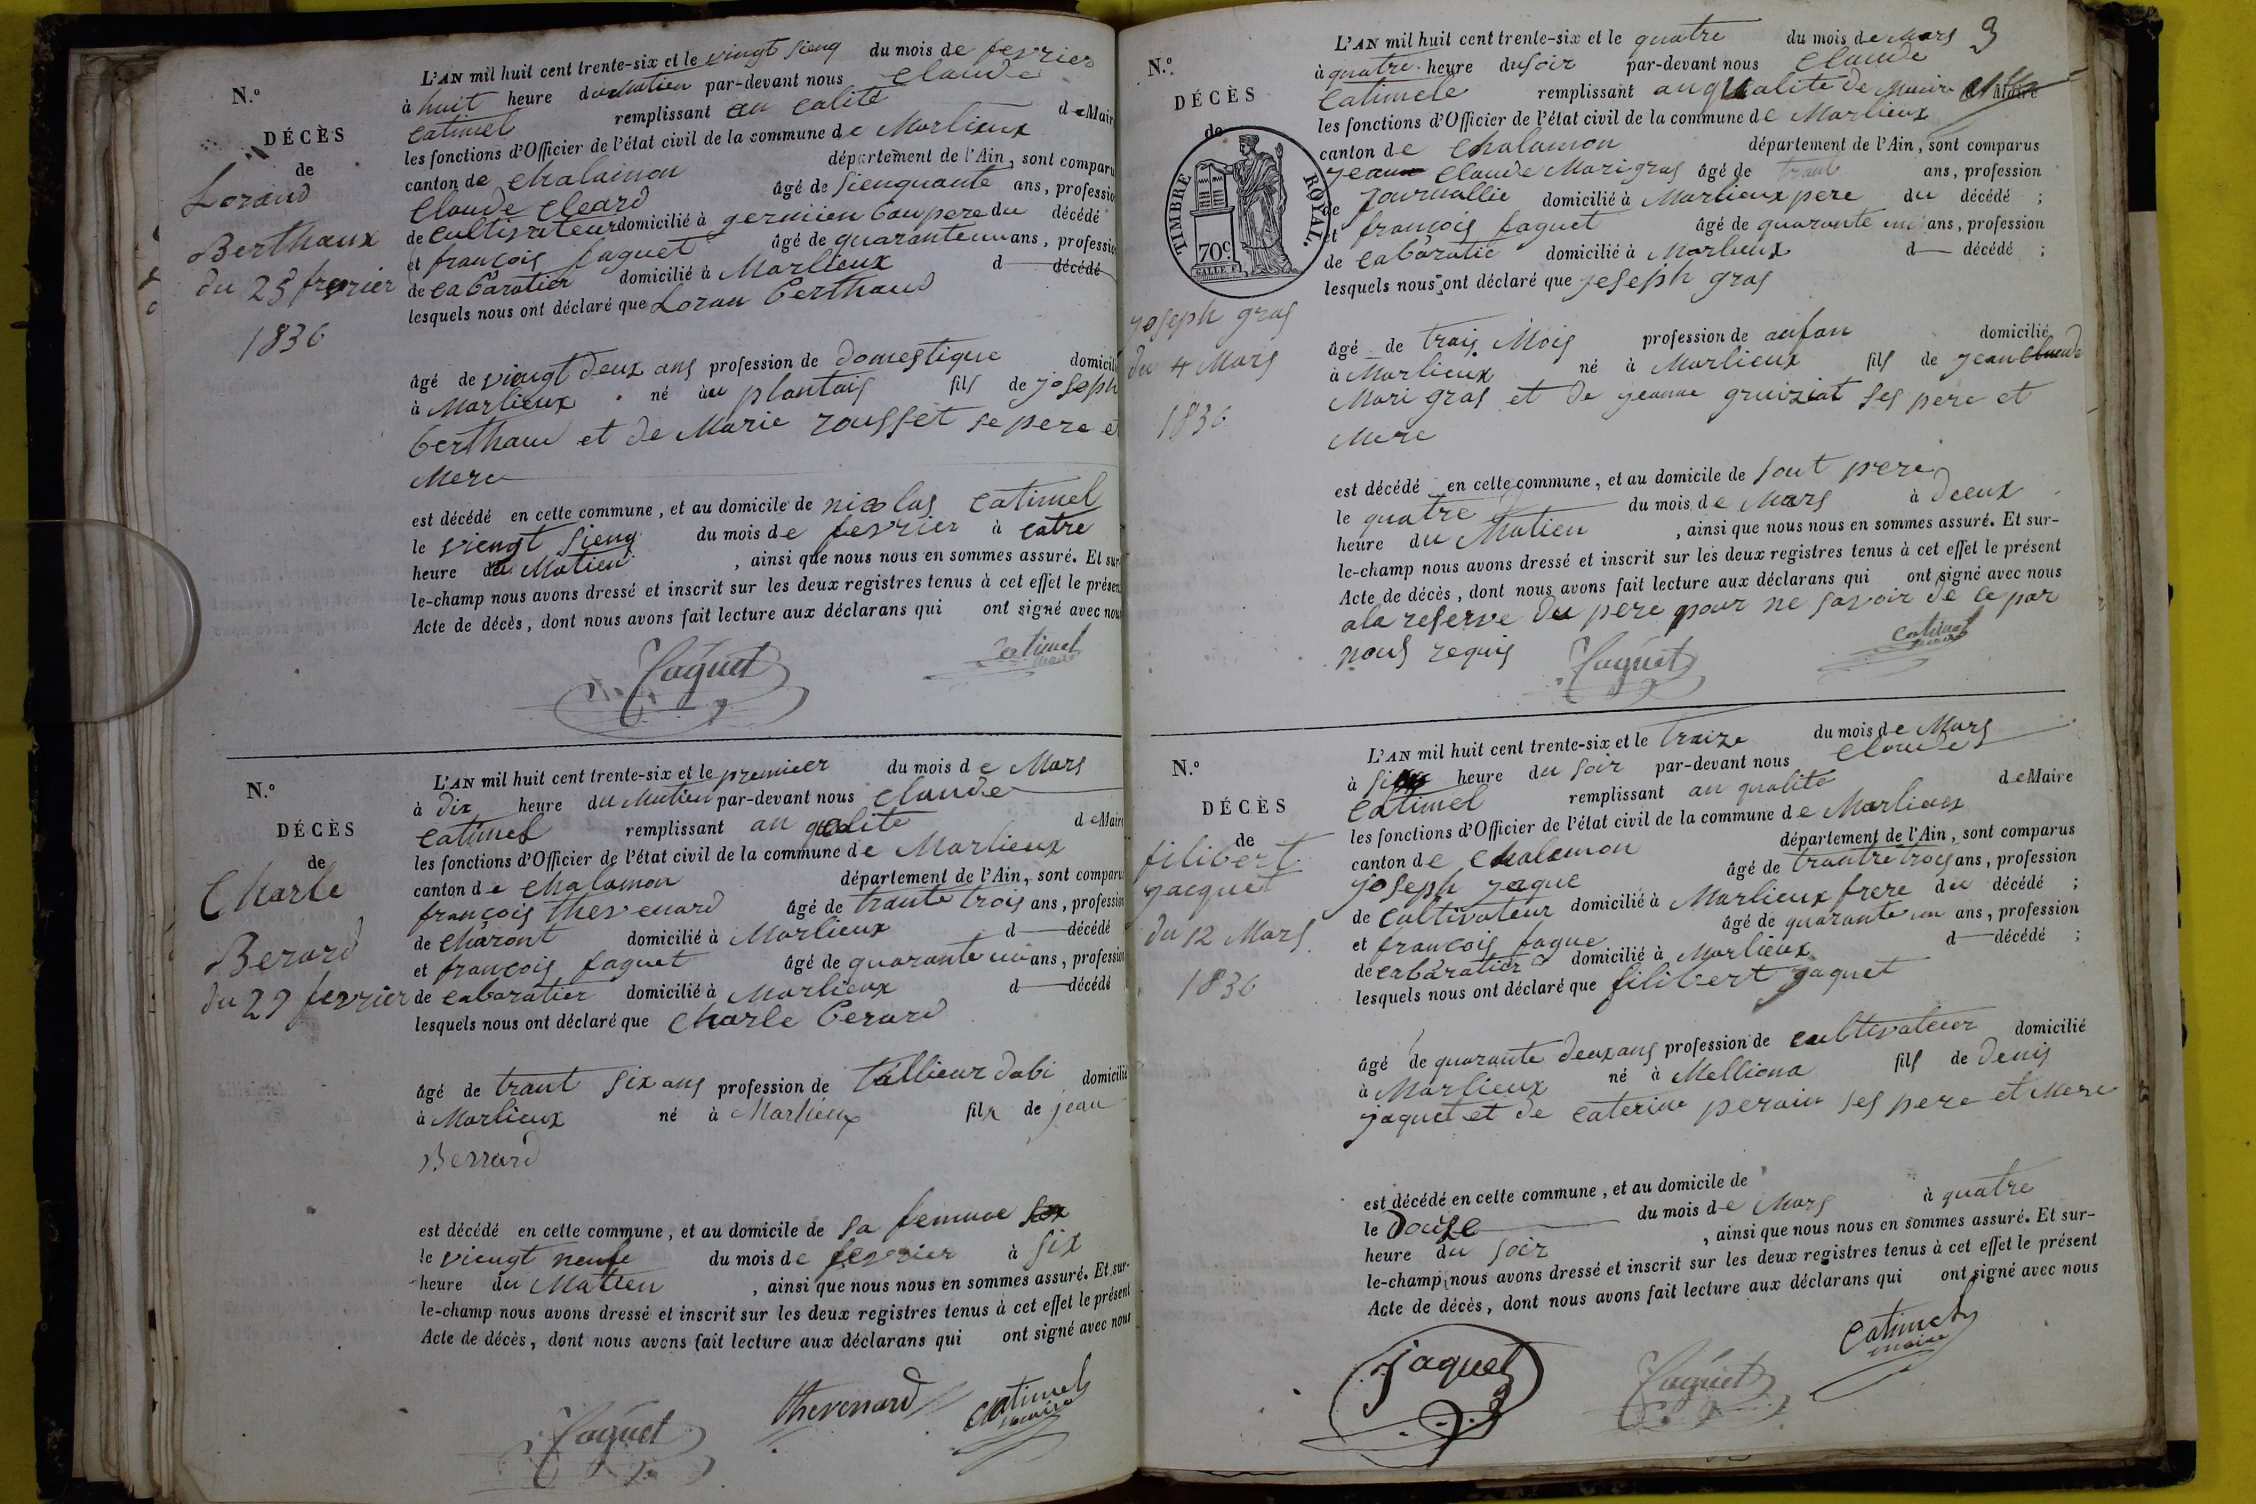 N.º
DÉCÈS
de
Lorand
Berthaux
du 25 fevrier
1836
L'AN mil huit cent trente-six et le vingt sienq du mois de fevrier
à huit heure du Matien par-devant nous Claude
Catimel remplissant an calité de Mair
les fonctions d'Officier de l'état civil de la commune de Marlieux
canton de Chalamon département de l'Ain, sont comparu
Claude Cleard âgé de sienquante ans, professio
de cultivateur domicilié à germien baupere du décédé
et françois faguet âgé de quarante un ans, professio
de cabaratier domicilié à Marlieux d décédé
lesquels nous ont déclaré que Loran berthaud
âgé de viengt deux ans profession de domestique domicil
à Marlieux né au plantais fils de joseph
berthaud et de Marie rousset se pere e
Mere
est décédé en cette commune, et au domicile de nicolas Catimel
le viengt sienq du mois de fevrier à catre
heure du Matien , ainsi que nous nous en sommes assuré. Et sur
le-champ nous avons dressé et inscrit sur les deux registres tenus à cet effet le présen
Acte de décès, dont nous avons fait lecture aux déclarans qui ont signé avec nou
Faguet Catimel
maire
N.º
DÉCÈS
de
Charle
Berard
du 29 fevrier
L'AN mil huit cent trente-six et le premieer du mois de Mars
à dix heure du Matien par-devant nous Claude
Catimel remplissant an qualite de Mair
les fonctions d'Officier de l'état civil de la commune de Marlieux
canton de Chalamon département de l'Ain, sont comparu
françois thevenard âgé de trante trois ans, profession
de Charont domicilié à Marlieux d décédé
et françois faguet âgé de quarante un ans, profession
de cabaratier domicilié à Marlieux d décédé
lesquels nous ont déclaré que Charle berard
âgé de trant six ans profession de tallieur dabi domicilié
à Marlieux né à Marlieux fils de jean
Berrard
est décédé en cette commune, et au domicile de sa femme
le viengt neufe du mois de fevrier à six
heure du Matien , ainsi que nous nous en sommes assuré. Et sur-
le-champ nous avons dressé et inscrit sur les deux registres tenus à cet effet le présent
Acte de décès, dont nous avons fait lecture aux déclarans qui ont signé avec nous
Faguet thevenard Catimel
maire
3
N.º
DÉCÈS
de
TIMBRE ROYAL.
70c
joseph gras
du 4 Mars
1836
L'AN mil huit cent trente-six et le quatre du mois de Mars
à quatre heure du soir par-devant nous Claude
Catimele remplissant an qualite de Maire
les fonctions d'Officier de l'état civil de la commune de Marlieux
canton de Chalamon département de l'Ain, sont comparus
jean Claude Mari gras âgé de trant ans, profession
de journallie domicilié à Marlieux pere du décédé ;
et françois faguet âgé de quarante un ans, profession
de cabaratie domicilié à Marlieux d décédé ;
lesquels nous ont déclaré que joseph gras
âgé de trais Mois profession de anfan domicilié
à Marlieux né à Marlieux fils de jean Claude
Mari gras et de jeanne gruiziat ses pere et
Mere
est décédé en cette commune, et au domicile de sout pere
le quatre du mois de Mars à deeux
heure du Matien , ainsi que nous nous en sommes assuré. Et sur-
le-champ nous avons dressé et inscrit sur les deux registres tenus à cet effet le présent
Acte de décès, dont nous avons fait lecture aux déclarans qui ont signé avec nous
a la reserve du pere pour ne savoir de ce par
nous requis Faguet Catimel
maire
N.º
DÉCÈS
de
filibert
jacquet
du 12 Mars
1836
L'AN mil huit cent trente-six et le traize du mois de Mars
à heure du soir par-devant nous Claude
Catimel remplissant an qualité de Maire
les fonctions d'Officier de l'état civil de la commune de Marlieux
canton de Chalamon département de l'Ain, sont comparus
joseph jaque âgé de trantre trois ans, profession
de cultivateur domicilié à Marlieux frere du décédé ;
et françois fague âgé de quarante un ans, profession
de cabaratier domicilié à Marlieux d décédé ;
lesquels nous ont déclaré que filibert jaquet
âgé de quarante deux ans profession de cultivateur domicilié
à Marlieux né à Melliona fils de denis
jaquet et de caterine perain ses pere et Mere
est décédé en cette commune, et au domicile de
le douse du mois de Mars à quatre
heure du soir , ainsi que nous nous en sommes assuré. Et sur-
le-champ nous avons dressé et inscrit sur les deux registres tenus à cet effet le présent
Acte de décès, dont nous avons fait lecture aux déclarans qui ont signé avec nous
jaquet Faguet Catimel
maire